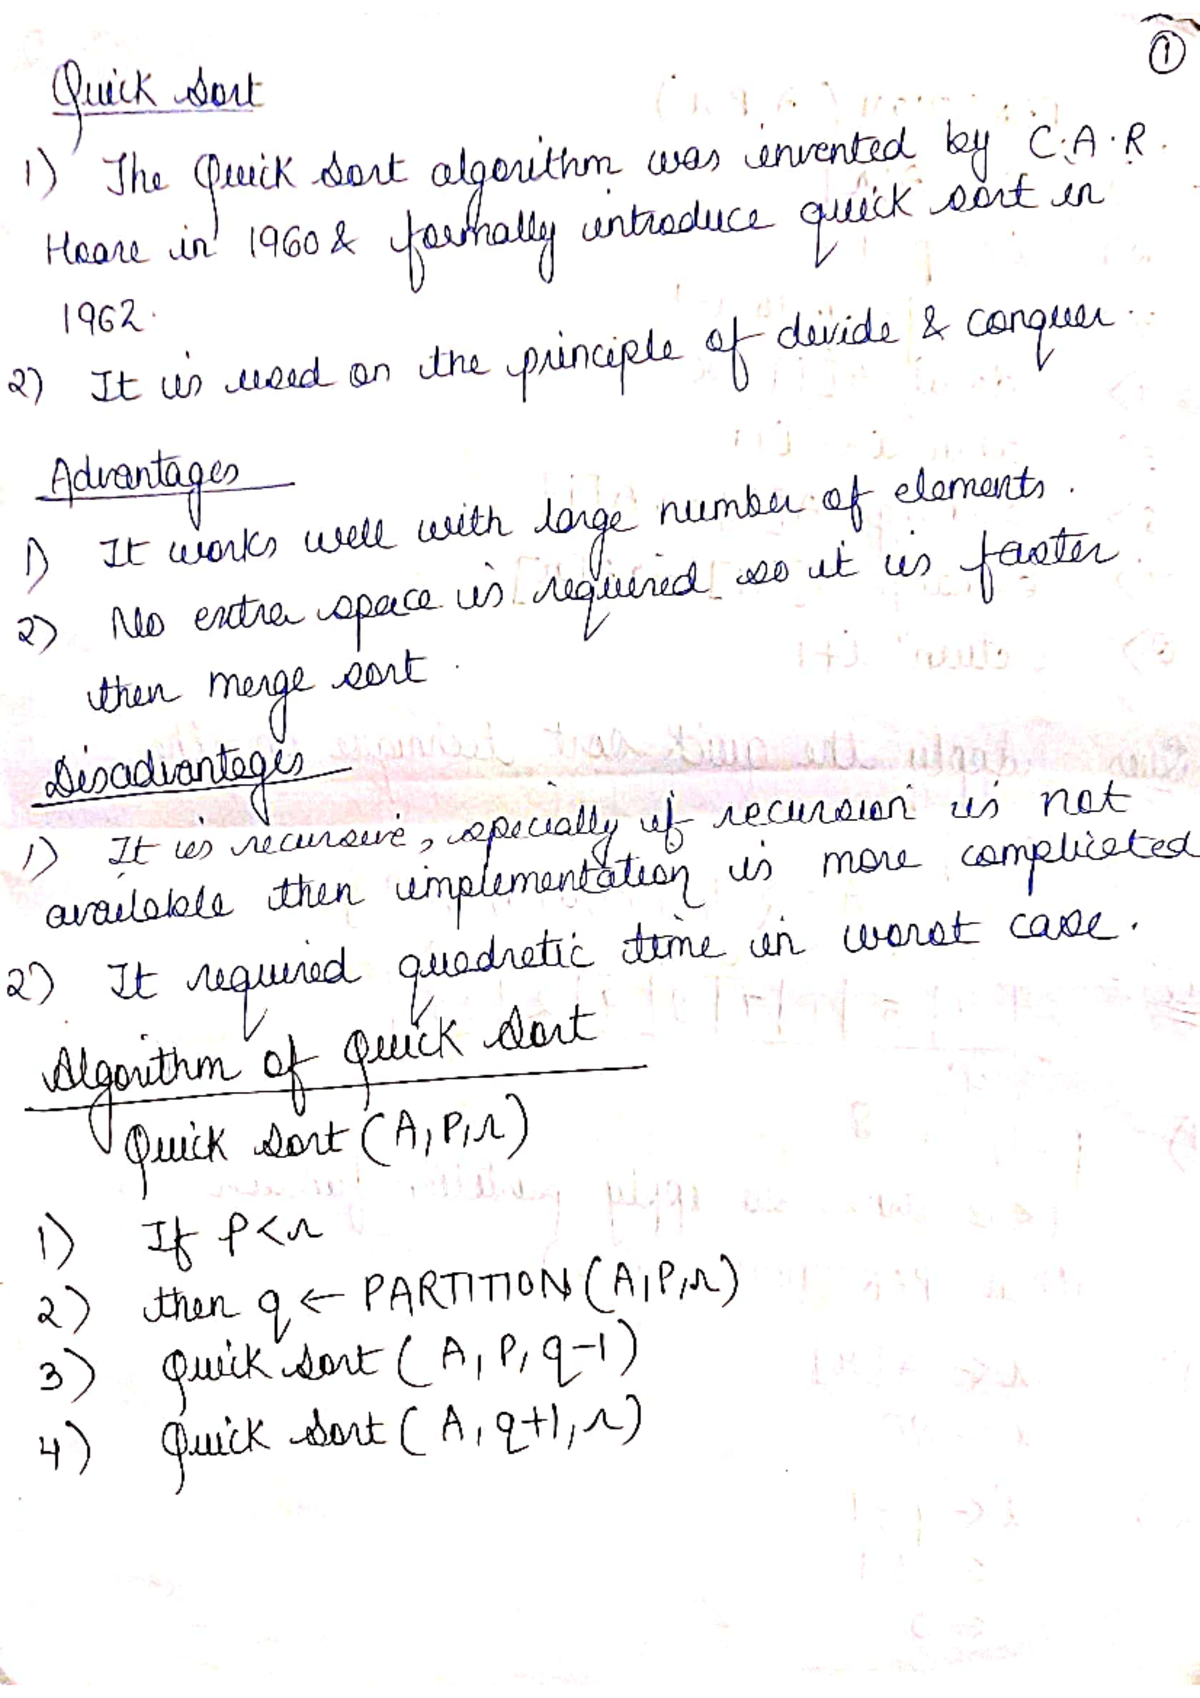 1
Quick Sort
1) The Quick Sort algorithm was invented by C.A.R.
Hoare in 1960 & formally introduce quick sort in
1962.
2) It is used on the principle of divide & conquer.
Advantages
1) It works well with large number of elements.
2) No extra space is required so it is faster
then merge sort.
Disadvantages
1) It is recursive, specially if recursion is not
available then implementation is more complicated
2) It required quadretic time in worst case.
Algorithm of Quick Sort
Quick Sort (A, P, r)
1) If P < r
2) then q ← PARTITION (A, P, r)
3) Quick Sort (A, P, q-1)
4) Quick Sort (A, q+1, r)